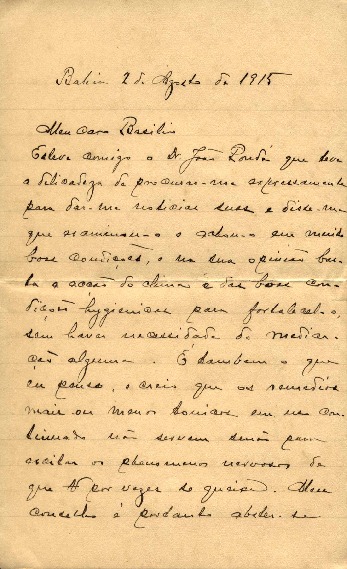 Bahia 2 de Agosto de 1915
Meu caro Basilio
Esteve comigo o Dr. João Pondé que teve
a delicadeza de procurar-me expressamente
para dar-me noticias suas e disse-me
que examinou-o e achou-o em muito
boas condições, e na sua opinião bas-
ta a acção do clima e das boas con-
dições hygienicas para fortalecel-o,
sem haver necessidade de medica-
ção alguma. É tambem o que
eu penso, e creio que os remedios
mais ou menos tonicos em uso con-
tinuado não servem senão para
excitar os phenomenos nervosos de
que por vezes se queixa. Meu
conselho é portanto abster-se